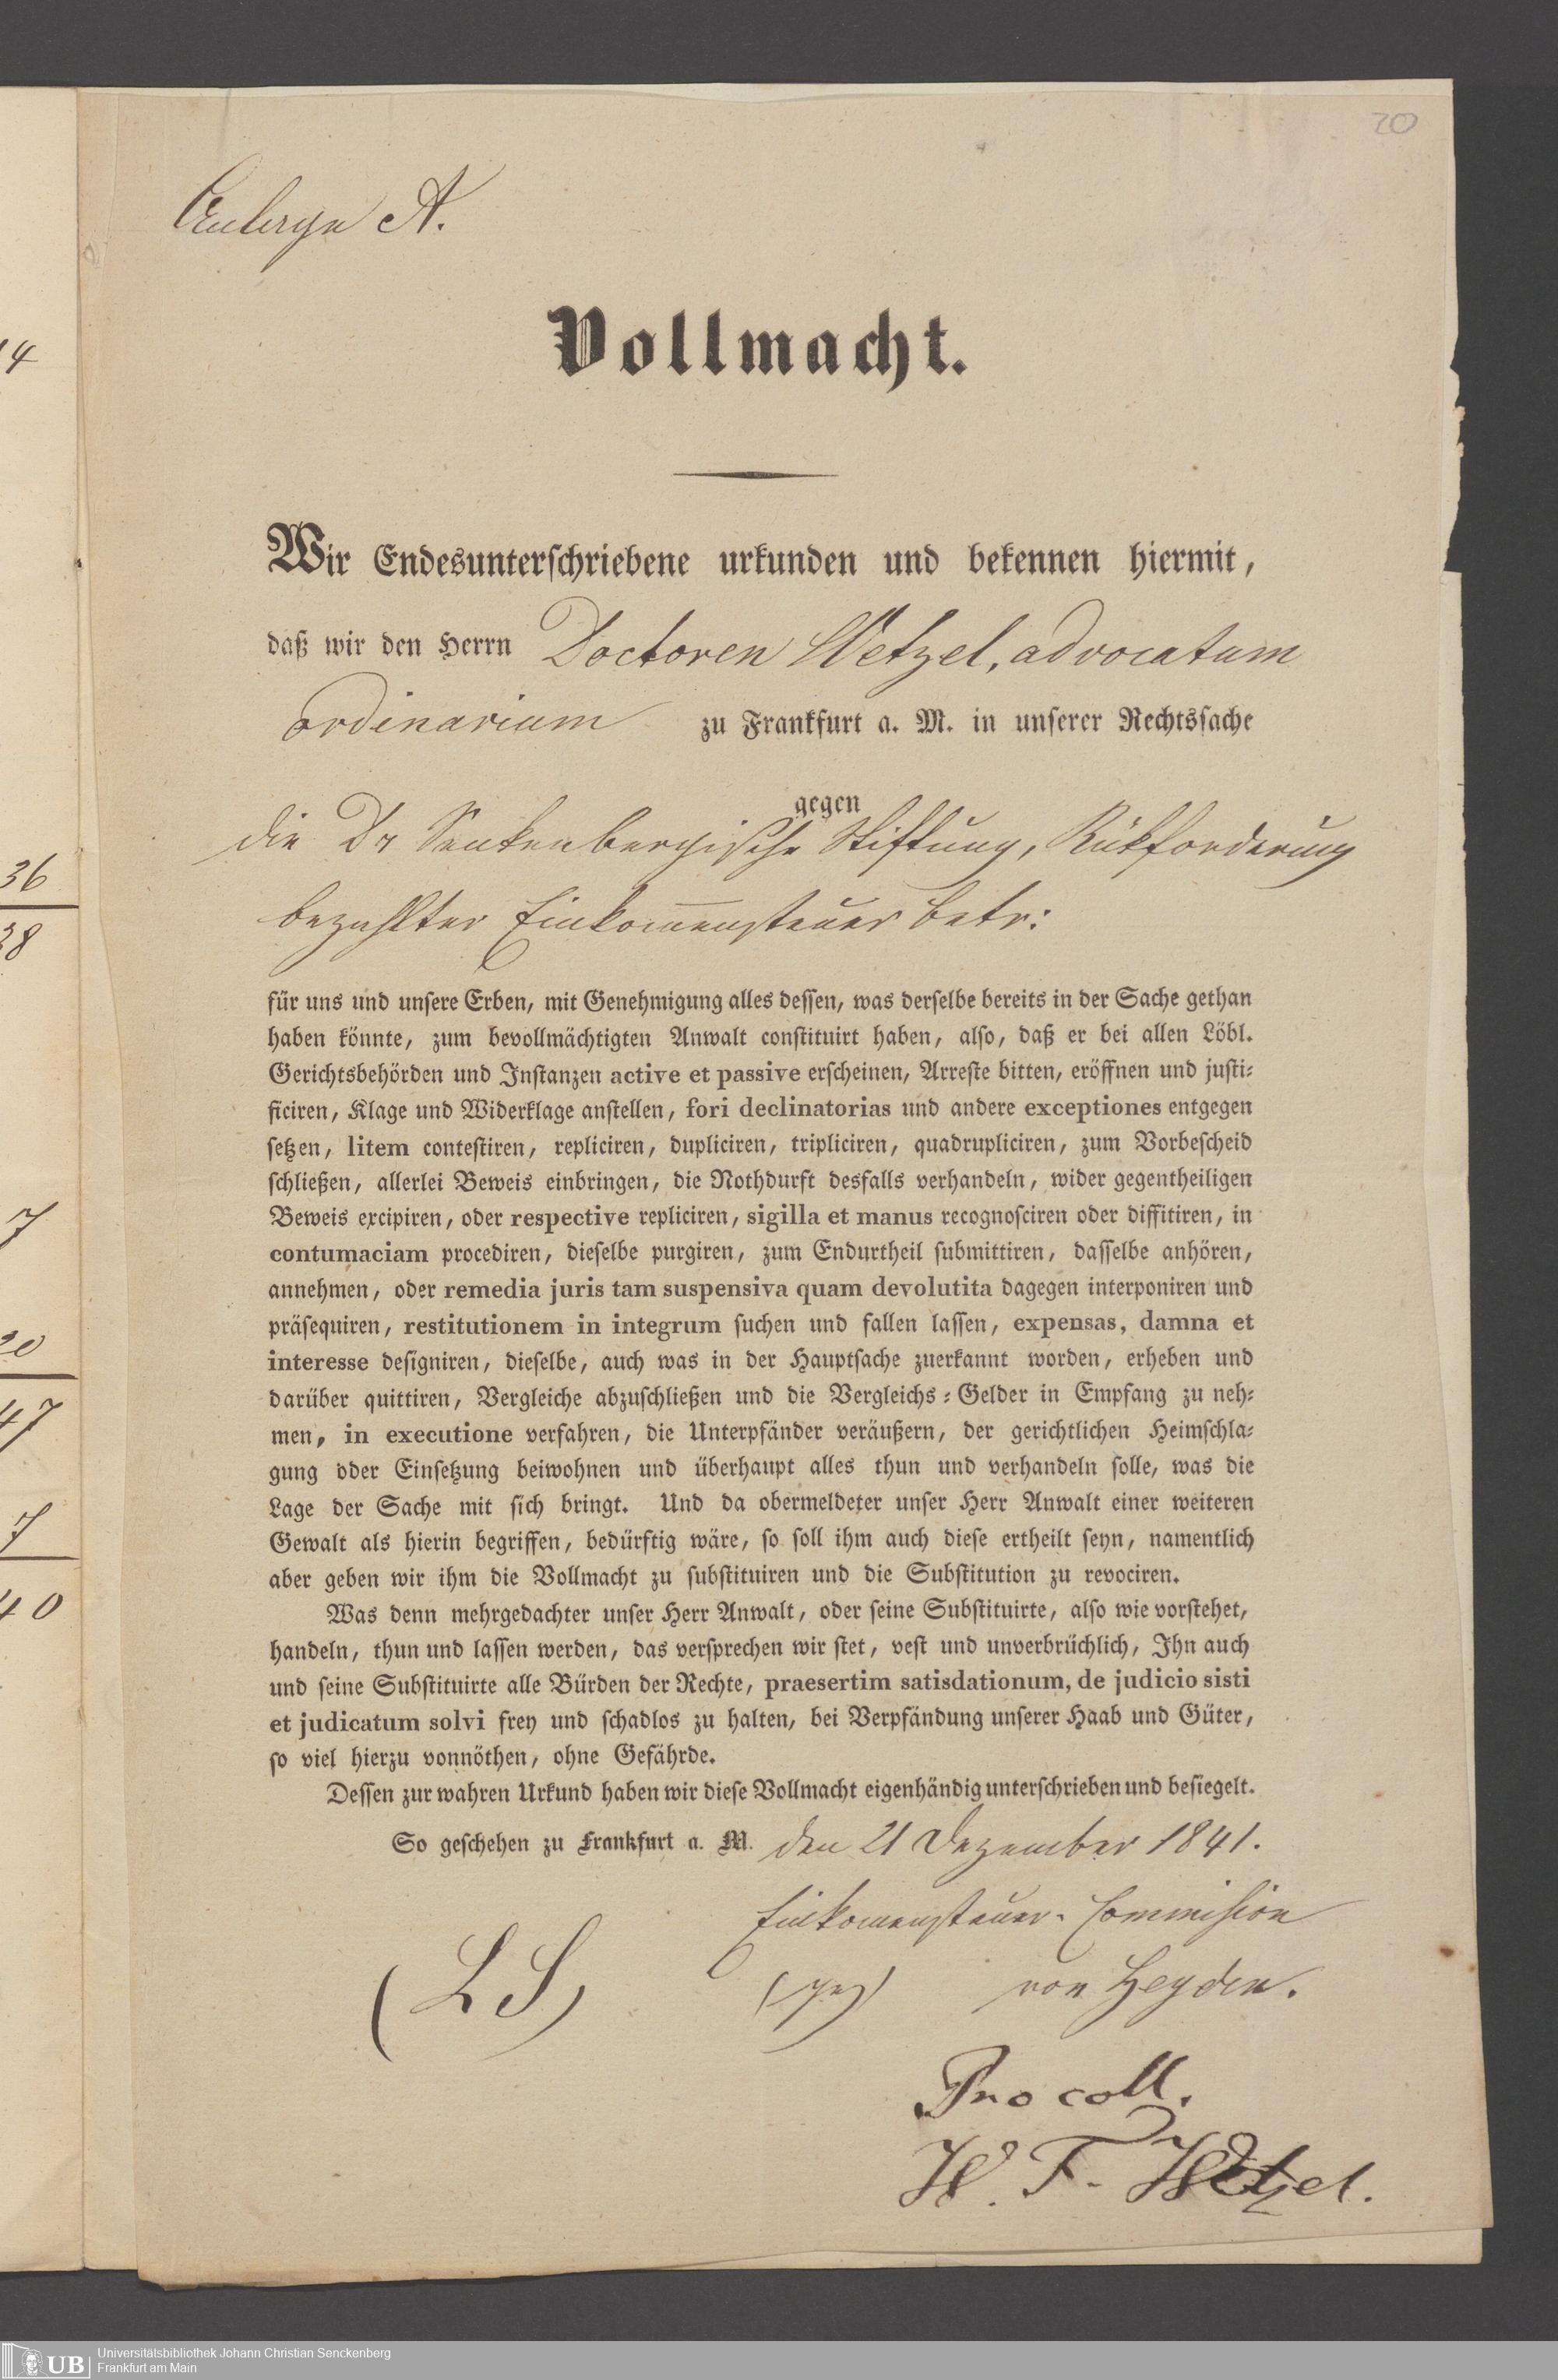 20
Anlage A.
Vollmacht.
Wir Endesunterschriebene urkunden und bekennen hiermit,
daß wir den Herrn Doctoren Wetzel, advocatum
ordinarium zu Frankfurt a. M. in unserer Rechtssache
gegen
die Dr Senkenbergische Stiftung, Rükforderung
bezahlter Einkommensteuer betr:
für uns und unsere Erben, mit Genehmigung alles dessen, was derselbe bereits in der Sache gethan
haben könnte, zum bevollmächtigten Anwalt constituirt haben, also, daß er bei allen Löbl.
Gerichtsbehörden und Instanzen active et passive erscheinen, Arreste bitten, eröffnen und justi-
ficiren, Klage und Widerklage anstellen, fori declinatorias und andere exceptiones entgegen
setzen, litem contestiren, repliciren, dupliciren, tripliciren, quadrupliciren, zum Vorbescheid
schließen, allerlei Beweis einbringen, die Nothdurft desfalls verhandeln, wider gegentheiligen
Beweis excipiren, oder respective repliciren, sigilla et manus recognosciren oder diffitiren, in
contumaciam procediren, dieselbe purgiren, zum Endurtheil submittiren, dasselbe anhören,
annehmen, oder remedia juris tam suspensiva quam devolutita dagegen interponiren und
präsequiren, restitutionem in integrum suchen und fallen lassen, expensas, damna et
interesse designiren, dieselbe, auch was in der Hauptsache zuerkannt worden, erheben und
darüber quittiren, Vergleiche abzuschließen und die Vergleichs-Gelder in Empfang zu neh-
men, in executione verfahren, die Unterpfänder veräußern, der gerichtlichen Heimschla-
gung oder Einsetzung beiwohnen und überhaupt alles thun und verhandeln solle, was die
Lage der Sache mit sich bringt. Und da obermeldeter unser Herr Anwalt einer weiteren
Gewalt als hierin begriffen, bedürftig wäre, so soll ihm auch diese ertheilt seyn, namentlich
aber geben wir ihm die Vollmacht zu substituiren und die Substitution zu revociren.
Was denn mehrgedachter unser Herr Anwalt, oder seine Substituirte, also wie vorstehet,
handeln, thun und lassen werden, das versprechen wir stet, vest und unverbrüchlich, Ihn auch
und seine Substituirte alle Bürden der Rechte, praesertim satisdationum, de judicio sisti
et judicatum solvi frey und schadlos zu halten, bei Verpfändung unserer Haab und Güter,
so viel hierzu vonnöthen, ohne Gefährde.
Dessen zur wahren Urkund haben wir diese Vollmacht eigenhändig unterschrieben und besiegelt.
So geschehen zu Frankfurt a. M. den 21 Dezember 1841.
Einkomensteuer-Commission
(LS) (gez) von Heyden.
Pro coll.
W. F. Wetzel.
14
36
38
7
20
47
7
40
UB Universitätsbibliothek Johann Christian Senckenberg
Frankfurt am Main